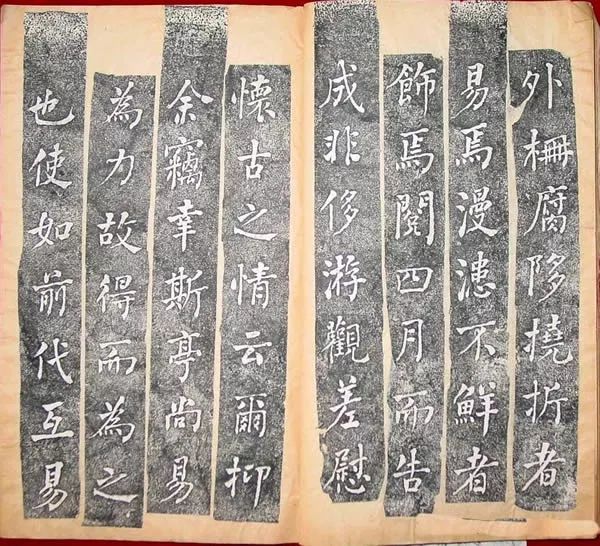 外柵腐陊撓折者
易焉漫漶不鮮者
飾焉閱四月而告
成非侈游觀差慰
懷古之情云爾抑
余竊幸斯亭尚易
為力故得而為之
也使如前代互易